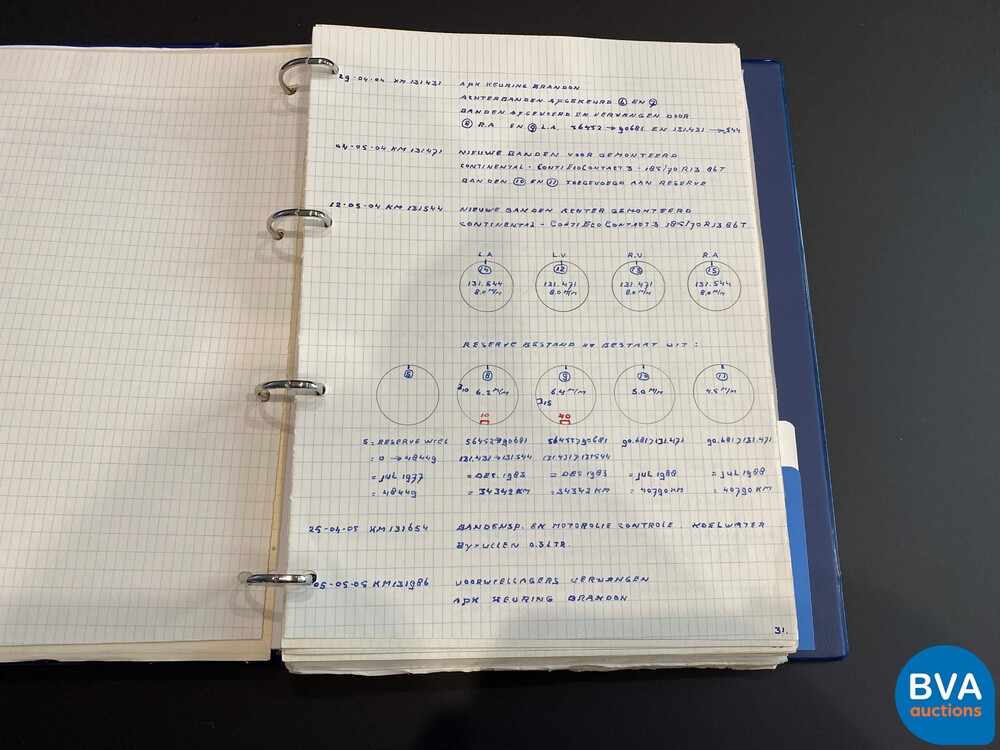 29-04-04 KM 131431 APK KEURING BRANDON
ACHTERBANDEN AFGEKEURD 6 EN 7
BANDEN AFGEVOERD EN VERVANGEN DOOR
8 R.A EN 9 L.A. 56452 → 90681 EN 131.431 → 544
04-05-04 KM 131471 NIEUWE BANDEN VOOR GEMONTEERD
CONTINENTAL - CONTI ECO CONTACT 3 - 185/70 R13 86T
BANDEN 10 EN 11 TOEGEVOEGD AAN RESERVE
12-05-04 KM 131544 NIEUWE BANDEN ACHTER GEMONTEERD
CONTINENTAL - CONTI ECO CONTACT 3 185/70 R13 86T
L.A L.V R.V R.A
14 12 13 15
131.544 131.471 131.471 131.544
8.0 M/M 8.0 M/M 8.0 M/M 8.0 M/M
RESERVE BESTAND NU BESTAAT UIT:
5 8 9 10 11
6.2 M/M 6.4 M/M 5.0 M/M 4.5 M/M
10 40
5 = RESERVE WIEL 56452 → 90681 56452 > 90681 90.681 > 131.471 90.681 > 131.471
= 0 → 48449 131.431 → 131544 131.431 > 131544
= JUL 1977 = DEC. 1983 = DEC 1983 = JUL 1988 = JUL 1988
= 48449 = 34342 KM = 34342 KM = 40790 KM = 40790 KM
25-04-05 KM 131654 BANDENSP. EN MOTOROLIE CONTROLE. KOELWATER
BYVULLEN 0.3 LTR.
05-05-05 KM 131986 VOORWIELLAGERS VERVANGEN
APK KEURING BRANDON
31.
BVA
auctions